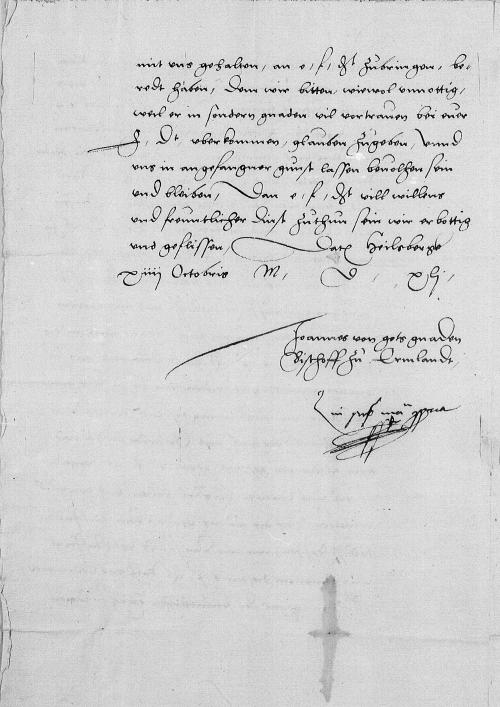 mit uns gehalten, an e, f, dt zubringen, be-
redt haben, Dem wir bitten, wiewol unnottig,
weil er in sondern gnaden vil vortrauen bei euer
f, Dt uberkommen, glauben zugeben, Vnnd
uns in angefangner gunst lassen bevolhen sein
und bleiben, Dan e, f, dt vill willens
und freuntlicher dinst zuthun sein wir erbottig
und geflissen, Datum Heilsbergk
xiiii Octobris M, D, xli,
Joannes von gots gnaden
Bischoff zu Ermlandt,